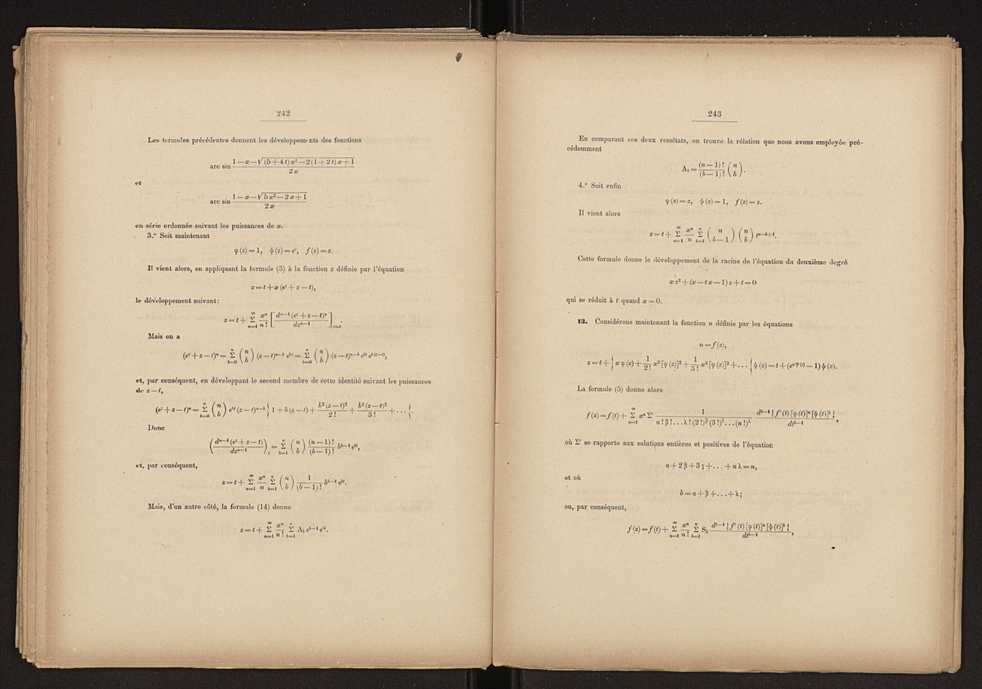 242
Les formules précédentes donnent les développements des fonctions
arc sin (1 − x − √((b + 4t) x² − 2 (1 + 2t) x + 1)) / 2x
et
arc sin (1 − x − √(b x² − 2x + 1)) / 2x
en série ordonnée suivant les puissances de x.
3.º Soit maintenant
φ (z) = 1, ψ (z) = eᶻ, f (z) = z.
Il vient alors, en appliquant la formule (3) à la fonction z définie par l'équation
z = t + x (eᶻ + z − t),
le développement suivant:
z = t + Σ_{n=1}^{∞} xⁿ/n! [dⁿ⁻¹ (eᶻ + z − t)ⁿ / dzⁿ⁻¹]_{z=t}.
Mais on a
(eᶻ + z − t)ⁿ = Σ_{b=0}^{n} (n b) (z − t)ⁿ⁻ᵇ e^{bz} = Σ_{b=0}^{n} (n b) (z − t)ⁿ⁻ᵇ e^{bt} e^{b(z−t)},
et, par conséquent, en développant le second membre de cette identité suivant les puissances
de z − t,
(eᶻ + z − t)ⁿ = Σ_{b=0}^{n} (n b) e^{bt} (z − t)ⁿ⁻ᵇ { 1 + b (z − t) + b² (z − t)²/2! + b³ (z − t)³/3! + . . . }
Donc
(dⁿ⁻¹ (eᶻ + z − t)ⁿ / dzⁿ⁻¹)_t = Σ_{b=1}^{n} (n b) (n − 1)!/(b − 1)! bᵇ⁻¹ e^{bt},
et, par conséquent,
z = t + Σ_{n=1}^{∞} xⁿ/n Σ_{b=1}^{n} (n b) 1/(b − 1)! bᵇ⁻¹ e^{bt}.
Mais, d'un autre côté, la formule (14) donne
z = t + Σ_{n=1}^{∞} xⁿ/n! Σ_{b=1}^{n} A₁ bᵇ⁻¹ e^{bt}.
243
En comparant ces deux resultats, on trouve la rélation que nous avons employée pré-
cédemment
A₁ = (n − 1)!/(b − 1)! (n b).
4.º Soit enfin
φ (z) = z, ψ (z) = 1, f (z) = z.
Il vient alors
z = t + Σ_{n=1}^{∞} xⁿ/n Σ_{b=1}^{n} (n b − 1) (n b) tⁿ⁻ᵇ⁺¹.
Cette formule donne le développement de la racine de l'équation du deuxième degré
x z² + (x − t x − 1) z + t = 0
qui se réduit à t quand x = 0.
13. Considérons maintenant la fonction u définie par les équations
u = f (z),
z = t + { x φ (z) + 1/2! x² [φ (z)]² + 1/3! x³ [φ (z)]³ + . . . } ψ (z) = t + (e^{xφ(z)} − 1) ψ (z).
La formule (5) donne alors
f (z) = f (t) + Σ_{n=1}^{∞} xⁿ Σ 1/(α! β! . . . λ! (2!)^β (3!)^γ . . . (n!)^λ) d^{b−1} { f′ (t) [φ (t)]ⁿ [ψ (t)]ᵇ } / dt^{b−1},
où Σ se rapporte aux solutions entières et positives de l'équation
α + 2 β + 3 γ + . . . + n λ = n,
et où
b = α + β + . . . + λ;
ou, par conséquent,
f (z) = f (t) + Σ_{n=1}^{∞} xⁿ/n! Σ_{b=1}^{n} S₁ d^{b−1} { f′ (t) [φ (t)]ⁿ [ψ (t)]ᵇ } / dt^{b−1},